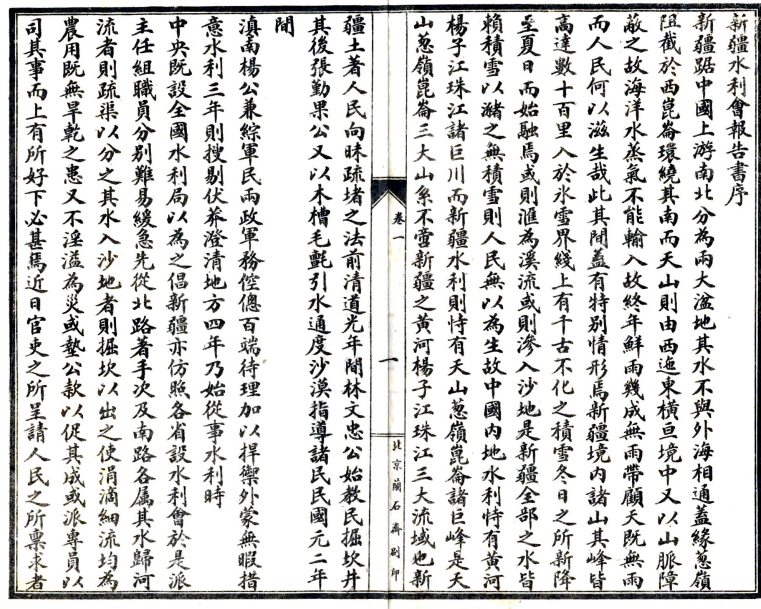 新疆水利會報告書序
新疆踞中國上游南北分為兩大盆地其水不與外海相通蓋緣蔥嶺
阻截於西崑崙環繞其南而天山則由西迤東橫亘境中又以山脈障
蔽之故海洋水蒸氣不能輸入故終年鮮雨幾成無雨帶顧天既無雨
而人民何以滋生哉此其間蓋有特別情形焉新疆境內諸山其峰皆
高達數十百里入於氷雪界綫上有千古不化之積雪冬日之所新降
至夏日而始融焉或則滙為溪流或則滲入沙地是新疆全部之水皆
賴積雪以瀦之無積雪則人民無以為生故中國內地水利恃有黃河
楊子江珠江諸巨川而新疆水利則恃有天山蔥嶺崑崙諸巨峰是天
山蔥嶺崑崙三大山系不啻新疆之黃河楊子江珠江三大流域也新
卷一
一
北京蘭石齋刷印
疆土著人民向昧疏堵之法前清道光年間林文忠公始教民掘坎井
其後張勤果公又以木槽毛氈引水通度沙漠指導諸民民國元二年
間
滇南楊公兼綜軍民兩政軍務倥傯百端待理加以捍禦外蒙無暇措
意水利三年則搜剔伏莽澄清地方四年乃始從事水利時
中央既設全國水利局以為之倡新疆亦仿照各省設水利會於是派
主任組職員分別難易緩急先從北路著手次及南路各屬其水歸河
流者則疏渠以分之其水入沙地者則掘坎以出之使涓滴細流均為
農用既無旱乾之患又不淫溢為災或墊公款以促其成或派專員以
司其事而上有所好下必甚焉近日官吏之所呈請人民之所稟求者